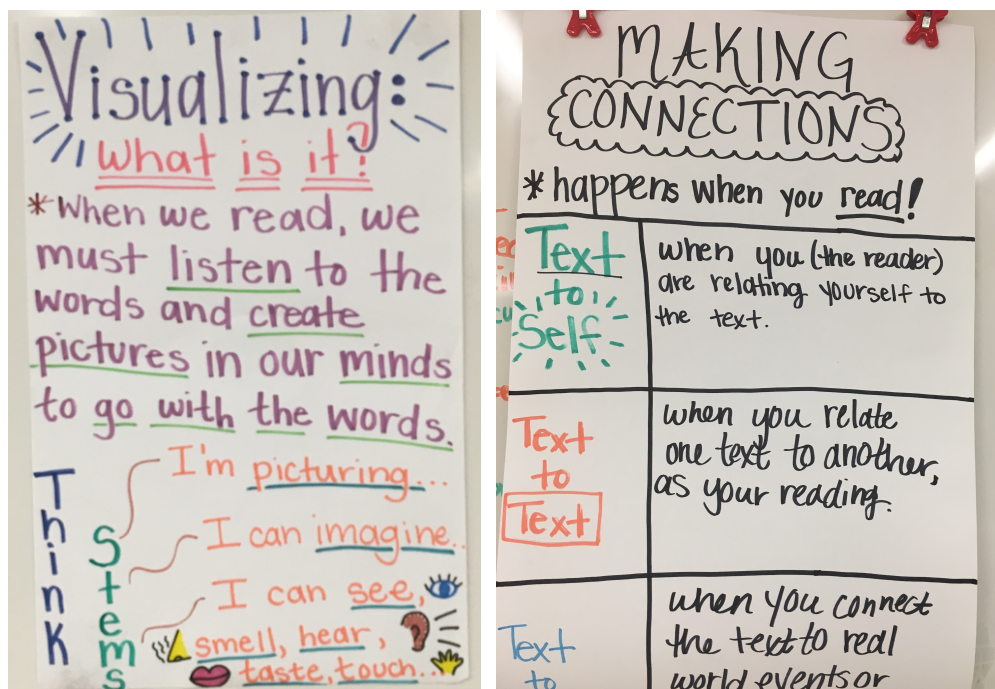 Visualizing:
What is it?
*When we read, we
must listen to the
words and create
pictures in our minds
to go with the words.
Think
Stems
I'm picturing...
I can imagine...
I can see,
smell, hear,
taste, touch...
MAKING
CONNECTIONS
*happens when you read!
Text
to
Self
when you (the reader)
are relating yourself to
the text.
Text
to
Text
when you relate
one text to another,
as your reading.
Text
to
when you connect
the text to real
world events or